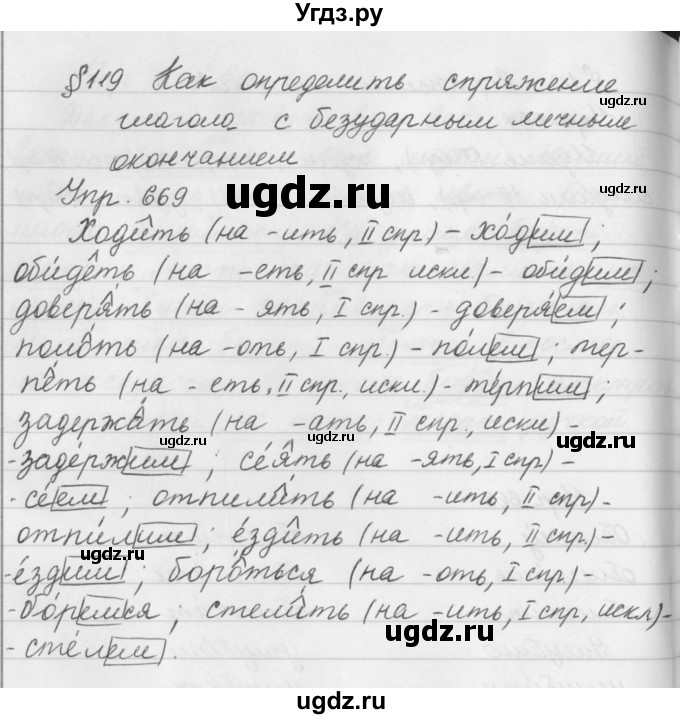 Угдз.ру
§119 Как определить спряжение
глагола с безударным личным
окончанием
Упр. 669
Ходить (на -ить, II спр.) - хо́дим;
оби́деть (на -еть, II спр искл.) - оби́дим;
доверя́ть (на - ять, I спр.) - доверя́ем;
поло́ть (на -оть, I спр.) - по́лем; тер-
пе́ть (на - еть, II спр., искл.) - те́рпим;
задержа́ть (на -ать, II спр., искл) -
-заде́ржим; се́ять (на -ять, I спр.) -
-се́ем; отпили́ть (на -ить, II спр) -
отпи́лим; е́здить (на -ить, II спр.) -
-е́здим; боро́ться (на -оть, I спр) -
-бо́ремся, стели́ть (на -ить, I спр, искл) -
-сте́лем.
ugdz.ru
ugdz.ru
ugdz.ru
ugdz.ru
ugdz.ru
ugdz.ru
ugdz.ru
ugdz.ru
ugdz.ru
ugdz.ru
ugdz.ru